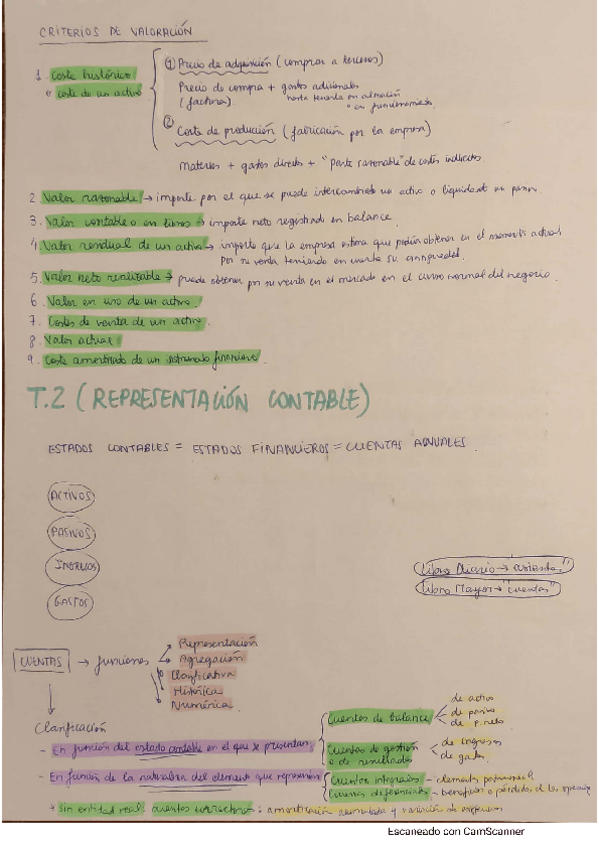 CRITERIOS DE VALORACIÓN
1. Coste histórico
o coste de un activo
① Precio de adquisición (comprar a terceros)
Precio de compra + gastos adicionales
(factura) hasta tenerla en almacén
o en funcionamiento
② Coste de producción (fabricación por la empresa)
Materias + gastos directos + "parte razonable" de costes indirectos
2. Valor razonable → importe por el que se puede intercambiar un activo o liquidar un pasivo.
3. Valor contable o en libros → importe neto registrado en balance.
4. Valor residual de un activo → importe que la empresa estima que podría obtener en el momento actual
por su venta teniendo en cuenta su antigüedad.
5. Valor neto realizable → puede obtener por su venta en el mercado en el curso normal del negocio.
6. Valor en uso de un activo.
7. Costes de venta de un activo.
8. Valor actual
9. Coste amortizado de un instrumento financiero.
T.2 (REPRESENTACIÓN CONTABLE)
ESTADOS CONTABLES = ESTADOS FINANCIEROS = CUENTAS ANUALES.
ACTIVOS
PASIVOS
INGRESOS
GASTOS
Libro Diario → "asientos"
Libro Mayor → "cuentas"
CUENTAS → funciones
Representación
Agregación
Clasificativa
Histórica
Numérica
Clasificación
- En función del estado contable en el que se presentan
Cuentas de balance
de activo
de pasivo
de p. neto
Cuentas de gestión
o de resultados
de ingresos
de gastos
- En función de la naturaleza del elemento que representan
Cuentas integrales - elementos patrimoniales
Cuentas diferenciales - beneficios o pérdidas de las
* Sin entidad real: cuentas correctoras: amortización acumulada y variación de existencias
Escaneado con CamScanner